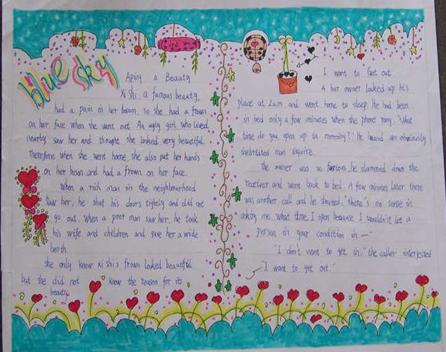 blue sky
Aping a Beauty
Xi Shi, a famous beauty,
had a pain in her bosom, so she had a frown
on her face when she went out. An ugly girl who lived
nearby saw her and thought she looked very beautiful.
Therefore when she went home, she also put her hands
on her bosom and had a frown on her face.
When a rich man in the neighbourhood
saw her, he shut his doors tightly and did not
go out. When a poor man saw her, he took
his wife and children and gave her a wide
berth.
She only knew Xi Shi's frown looked beautiful
but she did not know the reason for its
beauty.
I want to get out
A bar owner locked up his
place at 2 a.m and went home to sleep. He had been
in bed only a few minutes when the phone rang. "What
time do you open up in morning?" He heard an obviously
inebriated man inquire.
The owner was so furious, he slammed down the
receiver and went back to bed. A few minutes later there
was another call and he shouted. "There's no sense in
asking me what time I open because I wouldn't let a
person in your condition in —"
"I don't want to get in." the caller interjected
"I want to get out."